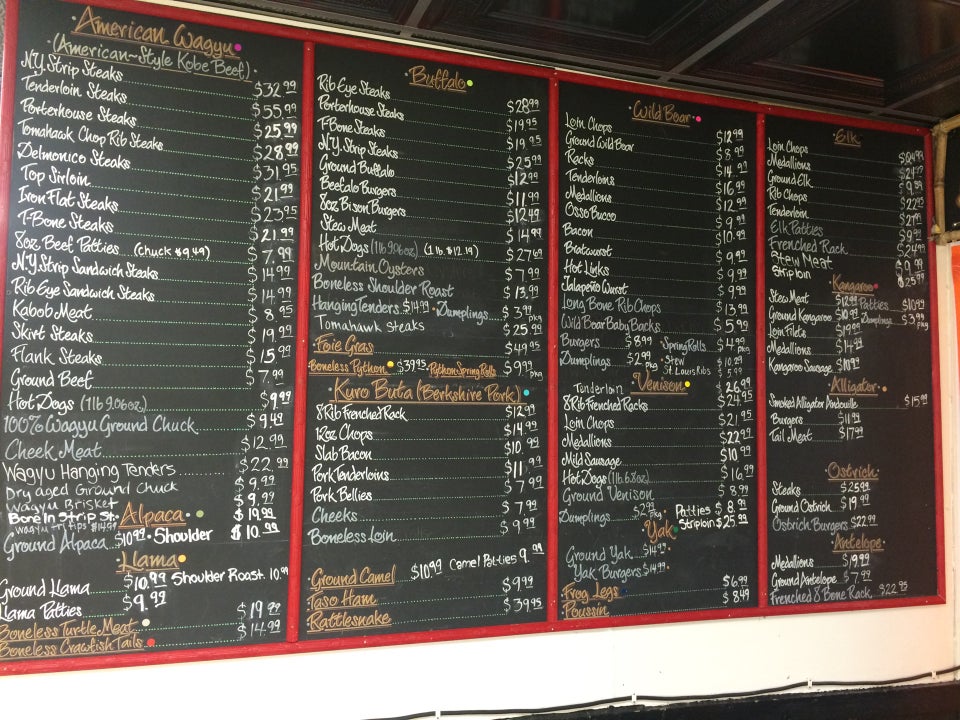 American Wagyu
(American~Style Kobe Beef)
N.Y. Strip Steaks $32.99
Tenderloin Steaks $55.99
Porterhouse Steaks $25.99
Tomahawk Chop Rib Steaks $28.99
Delmonico Steaks $31.95
Top Sirloin $21.99
Iron Flat Steaks $23.95
T-Bone Steaks $21.99
8oz Beef Patties (Chuck $9.49) $7.99
N.Y. Strip Sandwich Steaks $14.99
Rib Eye Sandwich Steaks $14.99
Kabob Meat $8.95
Skirt Steaks $19.99
Flank Steaks $15.99
Ground Beef $7.99
Hot Dogs (1lb 9.06oz) $9.99
100% Wagyu Ground Chuck $9.49
Cheek Meat $12.99
Wagyu Hanging Tenders $22.99
Dry aged Ground Chuck $9.99
Wagyu Brisket $9.99
Bone In Strip St. $19.99
Wagyu Tri Tips $14.99
Alpaca
Ground Alpaca $10.99 Shoulder $10.99
Llama
Ground Llama $10.99 Shoulder Roast 10.99
Llama Patties $9.99
Boneless Turtle Meat $19.99
Boneless Crawfish Tails $14.99
Buffalo
Rib Eye Steaks $28.99
Porterhouse Steaks $19.95
T-Bone Steaks $19.95
N.Y. Strip Steaks $25.99
Ground Buffalo $12.99
Beefalo Burgers $11.99
8oz Bison Burgers $12.49
Stew Meat $14.99
Hot Dogs (1lb 9.06oz) (1lb $12.19) $27.69
Mountain Oysters $7.99
Boneless Shoulder Roast $13.99
Hanging Tenders $14.99 Dumplings $3.99 pkg
Tomahawk Steaks $25.99
Foie Gras $49.95
Boneless Python $39.95 Python Spring Rolls $9.99 pkg
Kuro Buta (Berkshire Pork)
8 Rib Frenched Rack $12.99
12oz Chops $14.99
Slab Bacon $10.99
Pork Tenderloins $11.99
Pork Bellies $7.99
Cheeks $7.99
Boneless Loin $9.99
Ground Camel $10.99 Camel Patties 9.99
Taso Ham $9.99
Rattlesnake $39.95
Wild Boar
Loin Chops $12.99
Ground Wild Boar $8.99
Racks $14.99
Tenderloins $16.99
Medallions $12.99
Osso Bucco $9.99
Bacon $10.99
Bratwurst $9.99
Hot Links $9.99
Jalapeño Wurst $9.99
Long Bone Rib Chops $13.99
Wild Boar Baby Backs $5.99
Burgers $8.99 Spring Rolls $4.99 pkg
Dumplings $2.99 pkg Stew $10.99
St. Louis Ribs $5.99
Venison
Tenderloin $26.99
8 Rib Frenched Racks $24.95
Loin Chops $21.95
Medallions $22.99
Mild Sausage $10.99
Hot Dogs (1lb 6.8oz) $16.99
Ground Venison $8.99
Patties $8.99
Dumplings $2.99 pkg Striploin $25.99
Yak
Ground Yak $14.99
Yak Burgers $14.99
Frog Legs $6.99
Poussin $8.49
Elk
Loin Chops $24.99
Medallions $24.99
Ground Elk $9.89
Rib Chops $22.95
Tenderloin $27.99
Elk Patties $9.99
Frenched Rack $24.99
Stew Meat $9.99
Striploin $25.99
Kangaroo
Stew Meat $12.99 Patties $10.99
Ground Kangaroo $10.99 Dumplings $3.99 pkg
Loin Filets $19.99
Medallions $14.99
Kangaroo Sausage $10.99
Alligator
Smoked Alligator Andouille $15.99
Burgers $11.99
Tail Meat $17.99
Ostrich
Steaks $25.99
Ground Ostrich $19.99
Ostrich Burgers $22.99
Antelope
Medallions $19.99
Ground Antelope $7.99
Frenched 8 Bone Rack $22.95